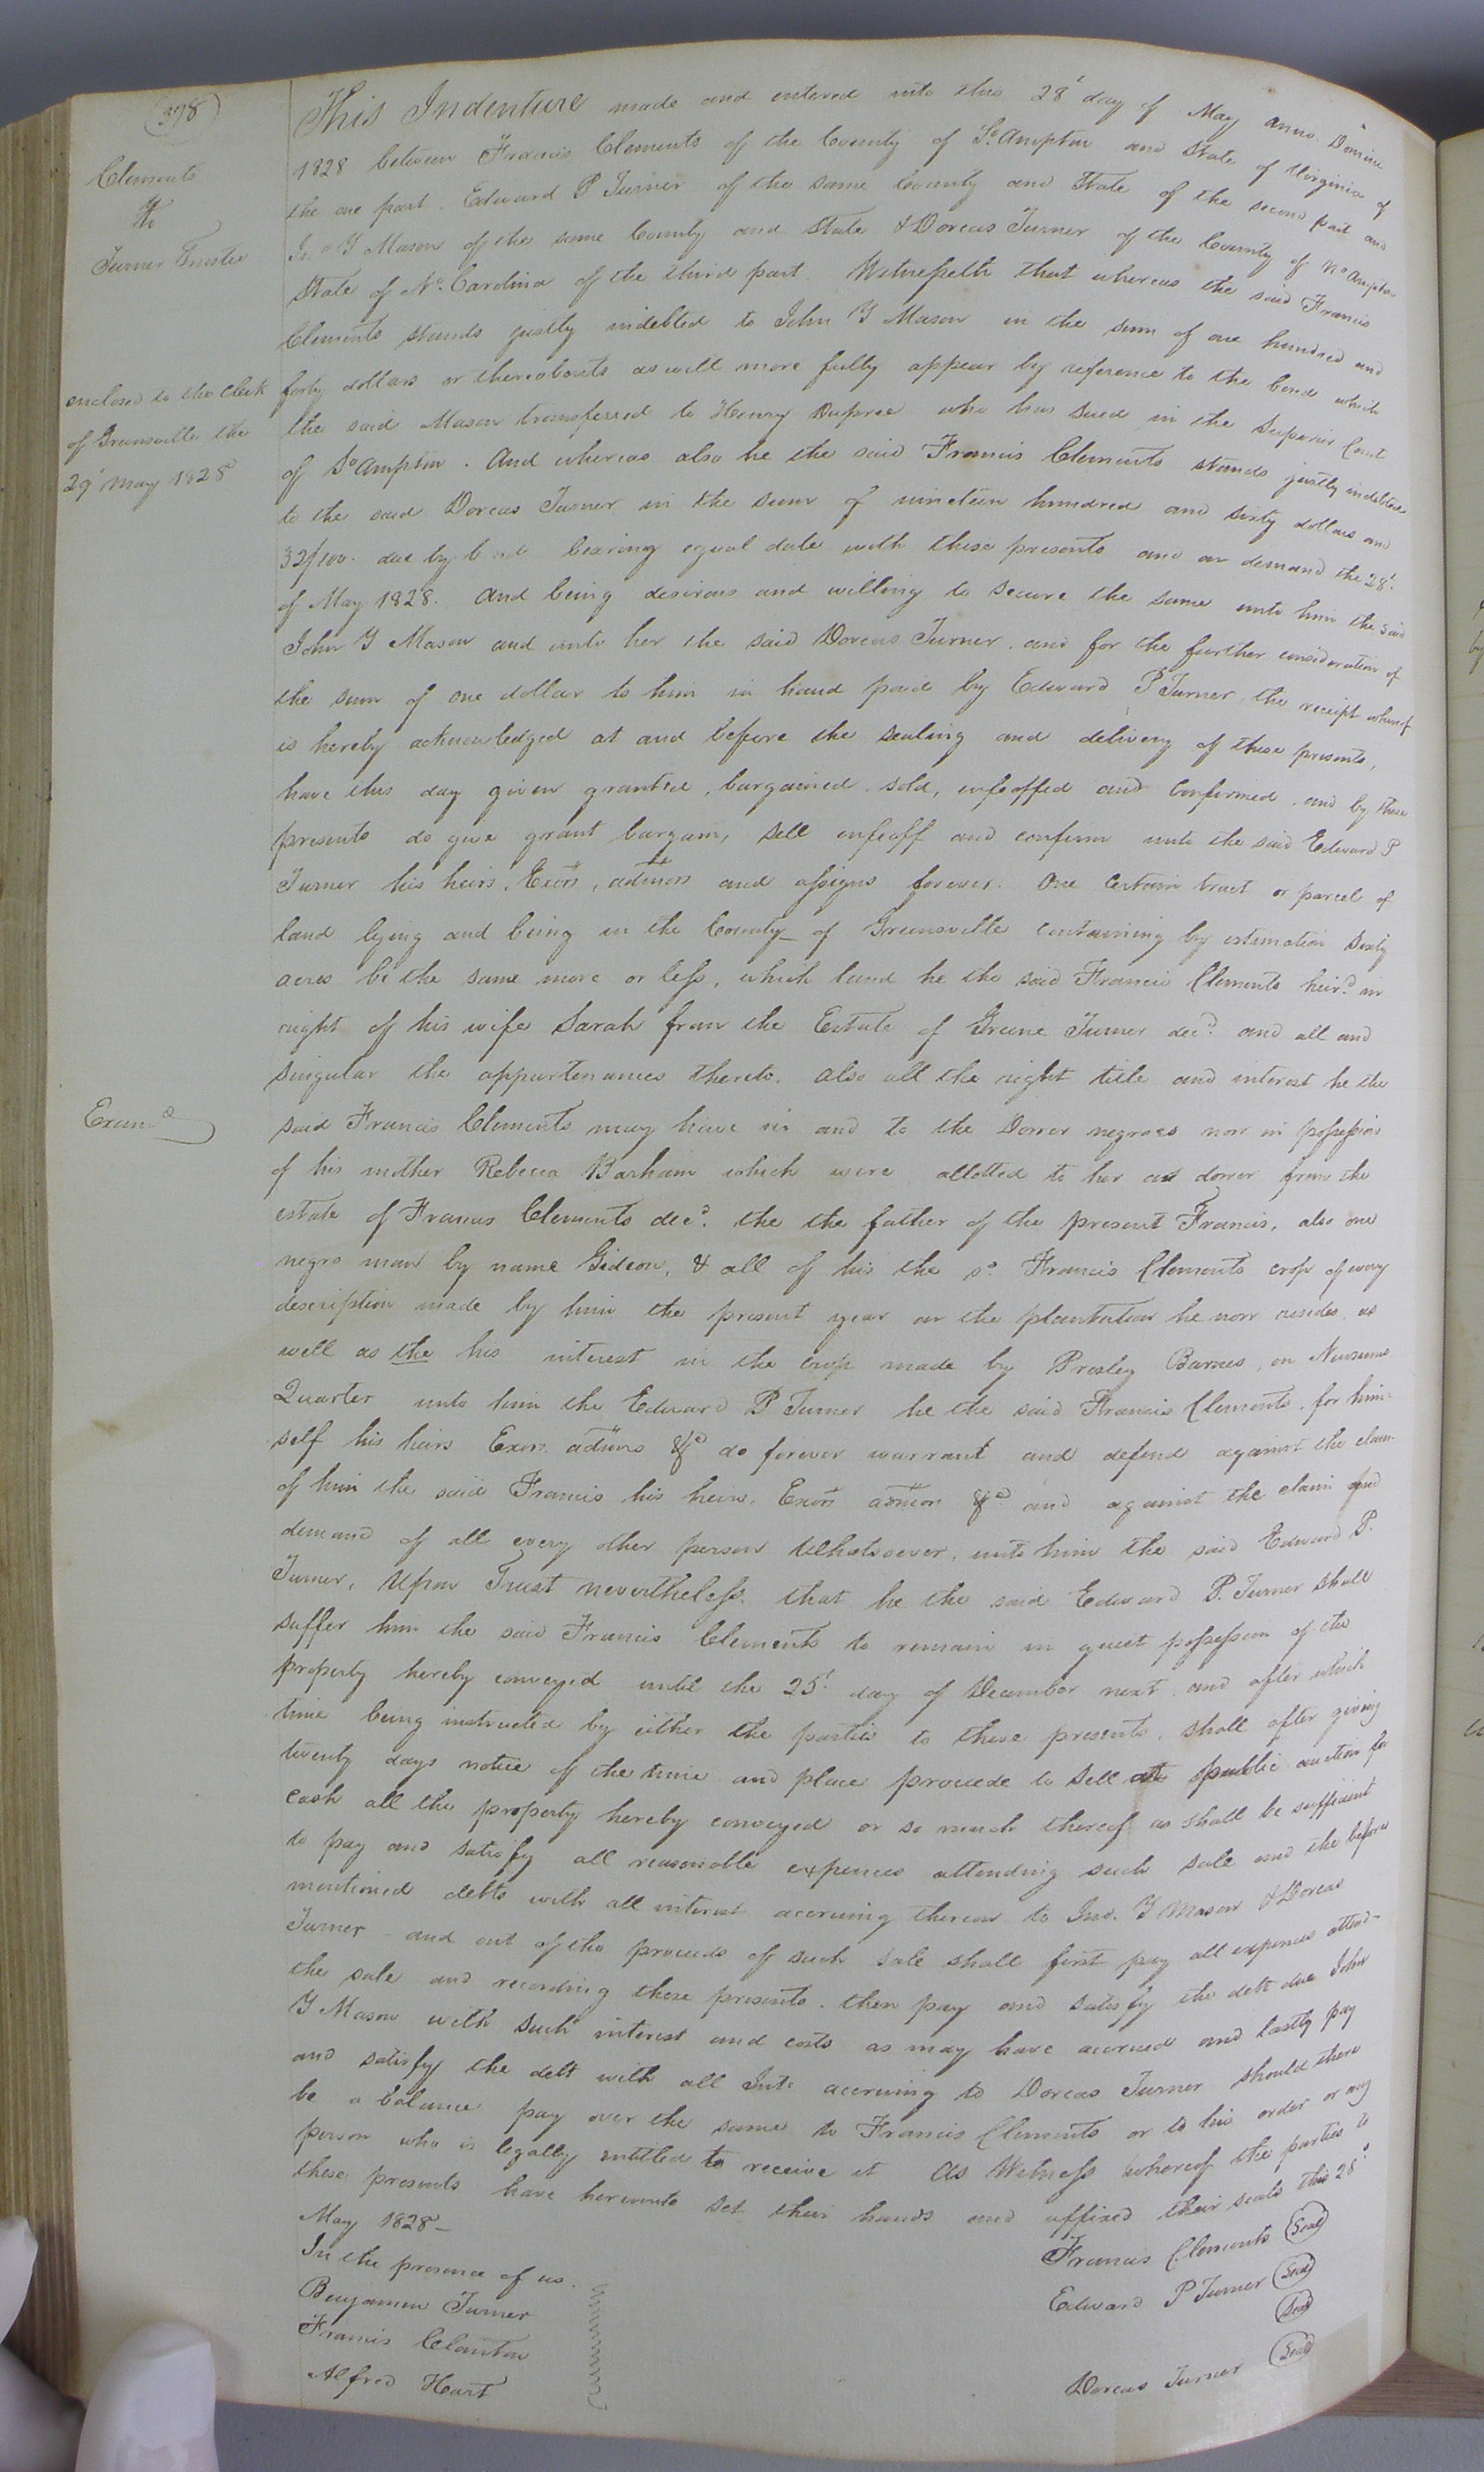 378
Clements
To
Turner Trustee
enclosed to the Clerk
of Greensville the
29' May 1828
Exam.d
This Indenture made and entered into this 28' day of May anno. Domini
1828 between Francis Clements of the County of So.Ampton and State of Virginia of
the one part. Edward P Turner of the same County and State of the second part and
Jno Y Mason of the same County and State & Dorcas Turner of the County of No.Ampton
State of No. Carolina of the third part. Witnesseth that whereas the said Francis
Clements stands justly indebted to John Y Mason in the sum of one hundred and
forty dollars or thereabouts as will more fully appear by reference to the bond which
the said Mason transferred to Henry Dupree who has sued in the Superior Court
of So.Ampton. And whereas also he the said Francis Clements stands justly indebted
to the said Dorcas Turner in the sum of nineteen hundred and sixty dollars and
32/100. due by bond bearing equal date with these presents and on demand the 28'.
of May 1828. And being desirous and willing to secure the same unto him the said
John Y Mason and unto her the said Dorcas Turner. and for the further consideration of
the sum of one dollar to him in hand paid by Edward P Turner the receipt whereof
is hereby acknowledged at and before the sealing and delivery of these presents,
have this day given granted, bargained sold, enfeoffed and Confirmed and by these
presents do give grant bargain, sell enfeoff and confirm unto the said Edward P
Turner his heirs, Exors, admors and assigns forever. One Certain tract or parcel of
land lying and being in the County of Greensville containing by estimation sixty
acres be the same more or less, which land he the said Francis Clements heird in
right of his wife Sarah from the Estate of Greene Turner decd. and all and
singular the appurtenances thereto. also all the right title and interest he the
said Francis Clements may have in and to the Dower negroes now in possession
of his mother Rebecca Barham which were allotted to her as dower from the
estate of Francis Clements decd. the the father of the present Francis, also one
negro man by name Gideon, & all of his the sd. Francis Clements crop of every
description made by him the present year on the plantation he now resides as
well as the his interest in the crop made by Presley Barnes, on Newsums
Quarter unto him the Edward P Turner he the said Francis Clements, for him-
self his heirs Exors. admors &c do forever warrant and defend against the claim
of him the said Francis his heirs, Exors admors &c and against the claim and
demand of all every other person Whatsoever, unto him the said Edward P.
Turner, Upon Trust nevertheless. that he the said Edward P. Turner shall
suffer him the said Francis Clements to remain in quiet possession of the
property hereby conveyed until the 25'. day of December next and after which
time being instructed by either the parties to these presents, shall after giving
twenty days notice of the time and place procede to sell at public auction for
Cash all the property hereby conveyed or so much thereof as shall be sufficient
to pay and satisfy all reasonable expences attending such sale and the before
mentioned debts with all interest accruing thereon to Jno. Y Mason & Dorcas
Turner and out of the proceeds of such sale shall first pay all expences attend-
the sale and recording these presents. then pay and satisfy the debt due John
Y Mason with such interest and costs as may have accrued and lastly pay
and satisfy the debt with all Int. accruing to Dorcas Turner should there
be a balance pay over the same to Francis Clements or to his order or any
person who is legally entitled to receive it As Witness whereof the parties to
these presents have hereunto set their hands and affixed their seals this 28'.
May 1828 -
In the presence of us.
Benjamin Turner
Francis Clanton
Alfred Hart
Francis Clements Seal
Edward P Turner Seal
Seal
Dorcas Turner Seal